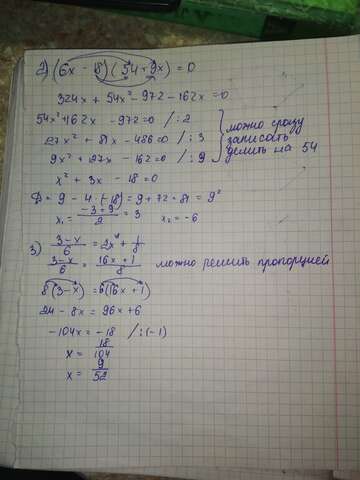 2) (6x - 18)(54+9x) = 0
324x + 54x² - 972 - 162x = 0
54x² + 162x - 972 = 0 /:2
27x² + 81x - 486 = 0 /:3
9x² + 27x - 162 = 0 /:9
x² + 3x - 18 = 0
можно сразу
записать
делить на 54
D = 9 - 4·(-18) = 9 + 72 = 81 = 9²
x₁ = (-3+9)/2 = 3 x₂ = -6
3) (3-x)/6 = 2x + 1/8
(3-x)/6 = (16x+1)/8 можно решить пропорцией
8(3-x) = 6(16x+1)
24 - 8x = 96x + 6
-104x = -18 /:(-1)
x = 18/104
x = 9/52